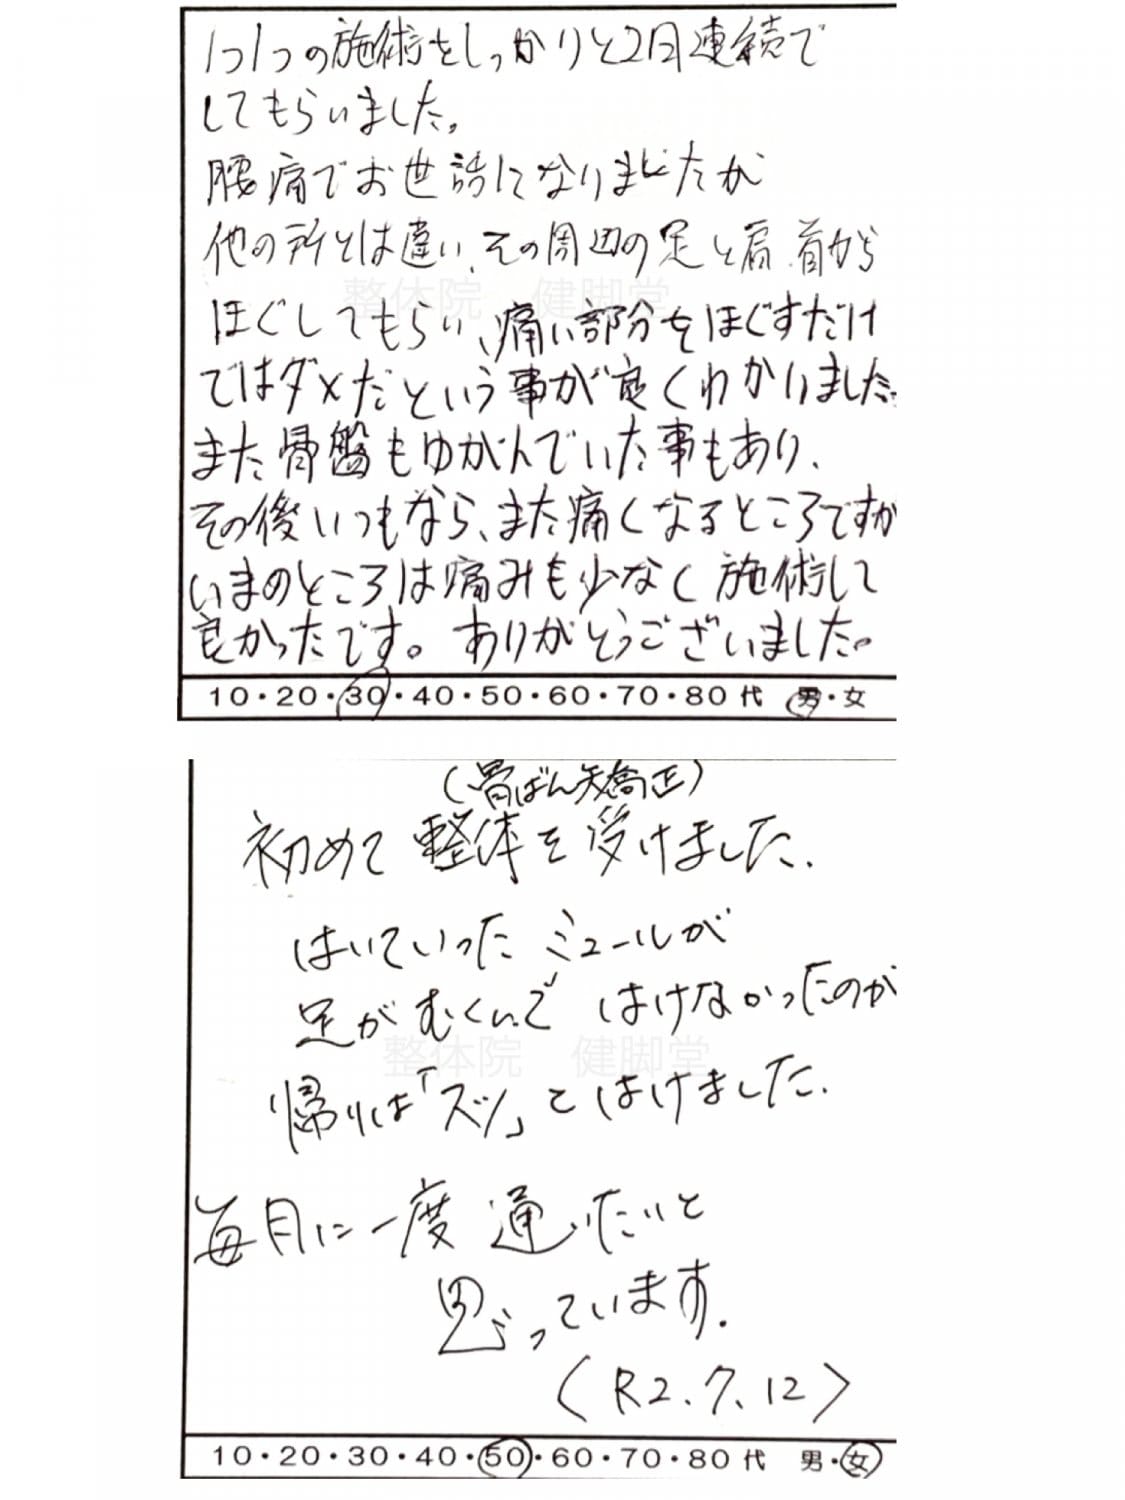 1つ1つの施術をしっかりと2日連続で
してもらいました。
腰痛でお世話になりましたが
他の所とは違い、その周辺の足と肩、首から
整体院 健脚堂
ほぐしてもらい、痛い部分をほぐすだけ
ではダメだという事が良くわかりました
また骨盤もゆがんでいた事もあり、
その後いつもなら、また痛くなるところですが
いまのところは痛みも少なく施術して
良かったです。ありがとうございました。
10・20・30・40・50・60・70・80代 男・女
(骨ばん矯正)
初めて整体を受けました.
はいていったミュールが
足がむくんで はけなかったのが
整体院 健脚堂
帰りは「スッ」とはけました.
毎月に一度 通いたいと
思っています.
(R2.7.12)
10・20・30・40・50・60・70・80代 男・女